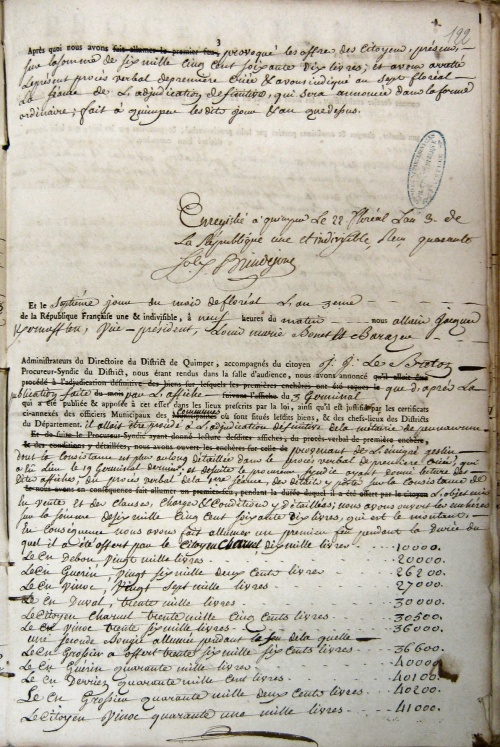 3
199
Après quoi nous avons fait allumer le premier feu, provoqué les offre des Citoyens présens,
sur la somme de six mille cinq cent soixante dix livres; et avons arrêté
le présent procès verbal de premiere Criée & avons indiqué au sept floréal
la séance de L'adjudication définitive, qui sera annoncée dans la forme
ordinaire; fait à quimper lesdits jour & an que dessus.
Enregistré à quimper Le 22 floréal L'an 3e de
La République une et indivisible, Reçu quarante
Et le septième jour du mois de floréal L'an 3eme
de la République Française une & indivisible, à neuf heures du matin nous allain Jacques
vice-président, Louis marie
Administrateurs du Directoire du District de Quimper, accompagnés du citoyen J. J. Le
Procureur-Syndic du District, nous étant rendus dans la salle d'audience, nous avons annoncé qu'il alloit être
procédé à l'adjudication définitive des biens sur lesquels les premières enchères ont été reçues le que d'après La
publication faite du mois par L'affiche suivant l'affiche du 3 Germinal
qui a été publiée & apposée à cet effet dans les lieux prescrits par la loi, ainsi qu'il est justifié par les certificats
ci-annexés des Officiers Municipaux des Communes où sont situés lesdits biens, & des chefs-lieux des Districts
du Département. il alloit être procédé à L'adjudication définitive de la métairie de
Et du faire le Procureur-Syndic ayant donné lecture desdites affiches, du procès-verbal de première enchère,
& des conditions y détaillées, nous avons ouvert les enchères sur celle de provenant de L'émigré
dont la consistance est plus aulong détaillée dans le procès verbal de premiere Criée, qui
a eu lieu le 19 Germinal dernier, et desuite le procureur syndic ayant donné lecture des
dites affiches, du procès verbal de la 1ere séance, des détails y portés sur la consistance de
& nous avons en conséquence fait allumer un premier feu, pendant la durée duquel il a été offert par le citoyen L'objet mis
en vente et des clauses, charges & Conditions y détaillées; nous avons ouvert les enchères
sur la somme de six mille cinq cent soixante dix livres, qui est le montant des
En Conséquence nous avons fait allumer un premier feu pendant la durée du
quel il a été offert par le Citoyen Charuel dix mille livres 10000.
Le Cn Debon, vingt mille livres 20000.
Le Cn Guérin, vingt six mille deux Cents livres 26200.
Le Cn Vinoc, vingt sept mille livres 27000.
Le Cn Duval, trente mille livres 30000.
Le Citoyen Charuel trente mille Cinq Cents livres 30500.
Le Cn Vinoc trente six mille livres 36000.
une seconde Bougie allumée pendant le feu de la quelle
Le Cn Grosier a offert trente six mille six Cents livres 36600.
Le Cn Guérin quarante mille livres 40000.
Le Cn Derrien quarante mille cent livres 40100.
Le Cn Grosier quarante mille deux Cents livres 40200.
Le Citoyen Vinoc quarante une mille livres 41000.